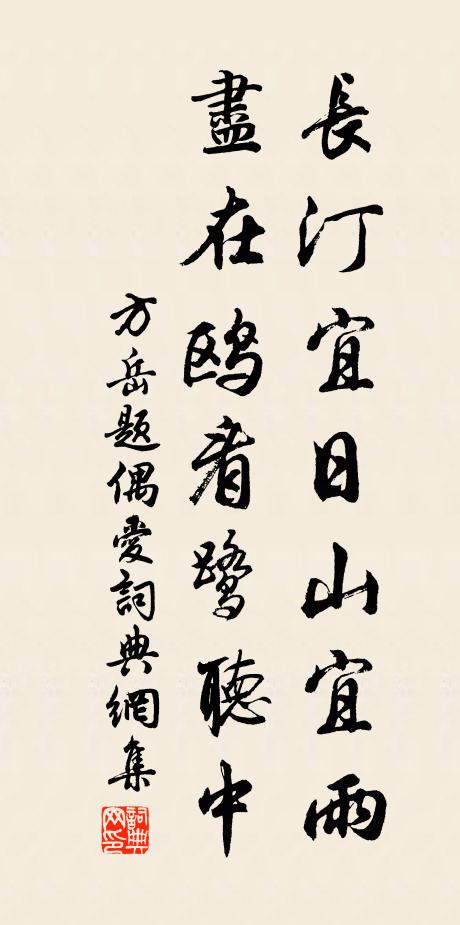 長汀宜日山宜雨
盡在鸥看鹭聽中
方岳題偶愛詞典網集
詞典網印